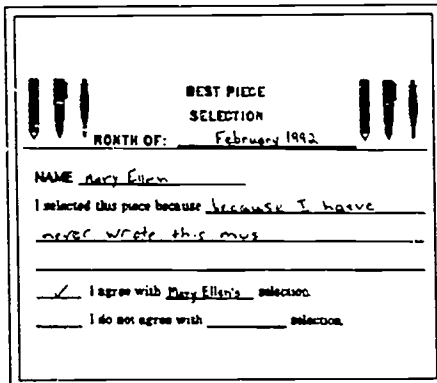 BEST PIECE
SELECTION
MONTH OF: February 1992
NAME Mary Ellen
I selected this piece because because I haeve
never wrote this mus
✓ I agree with Mary Ellen's selection.
I do not agree with selection.